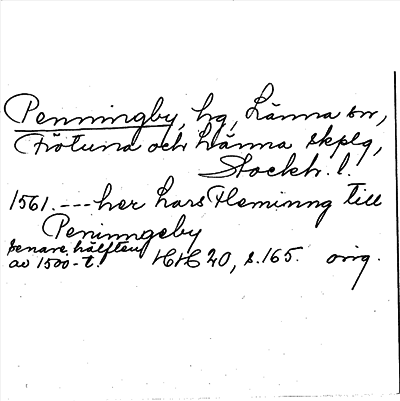 Penningby, hg, Länna sn,
Frötuna och Länna skplg,
Stockh. l.
1561. --- her Lars Fleminng till
Peninngeby
senare hälften
av 1500-t. HH 20, s. 165. orig.